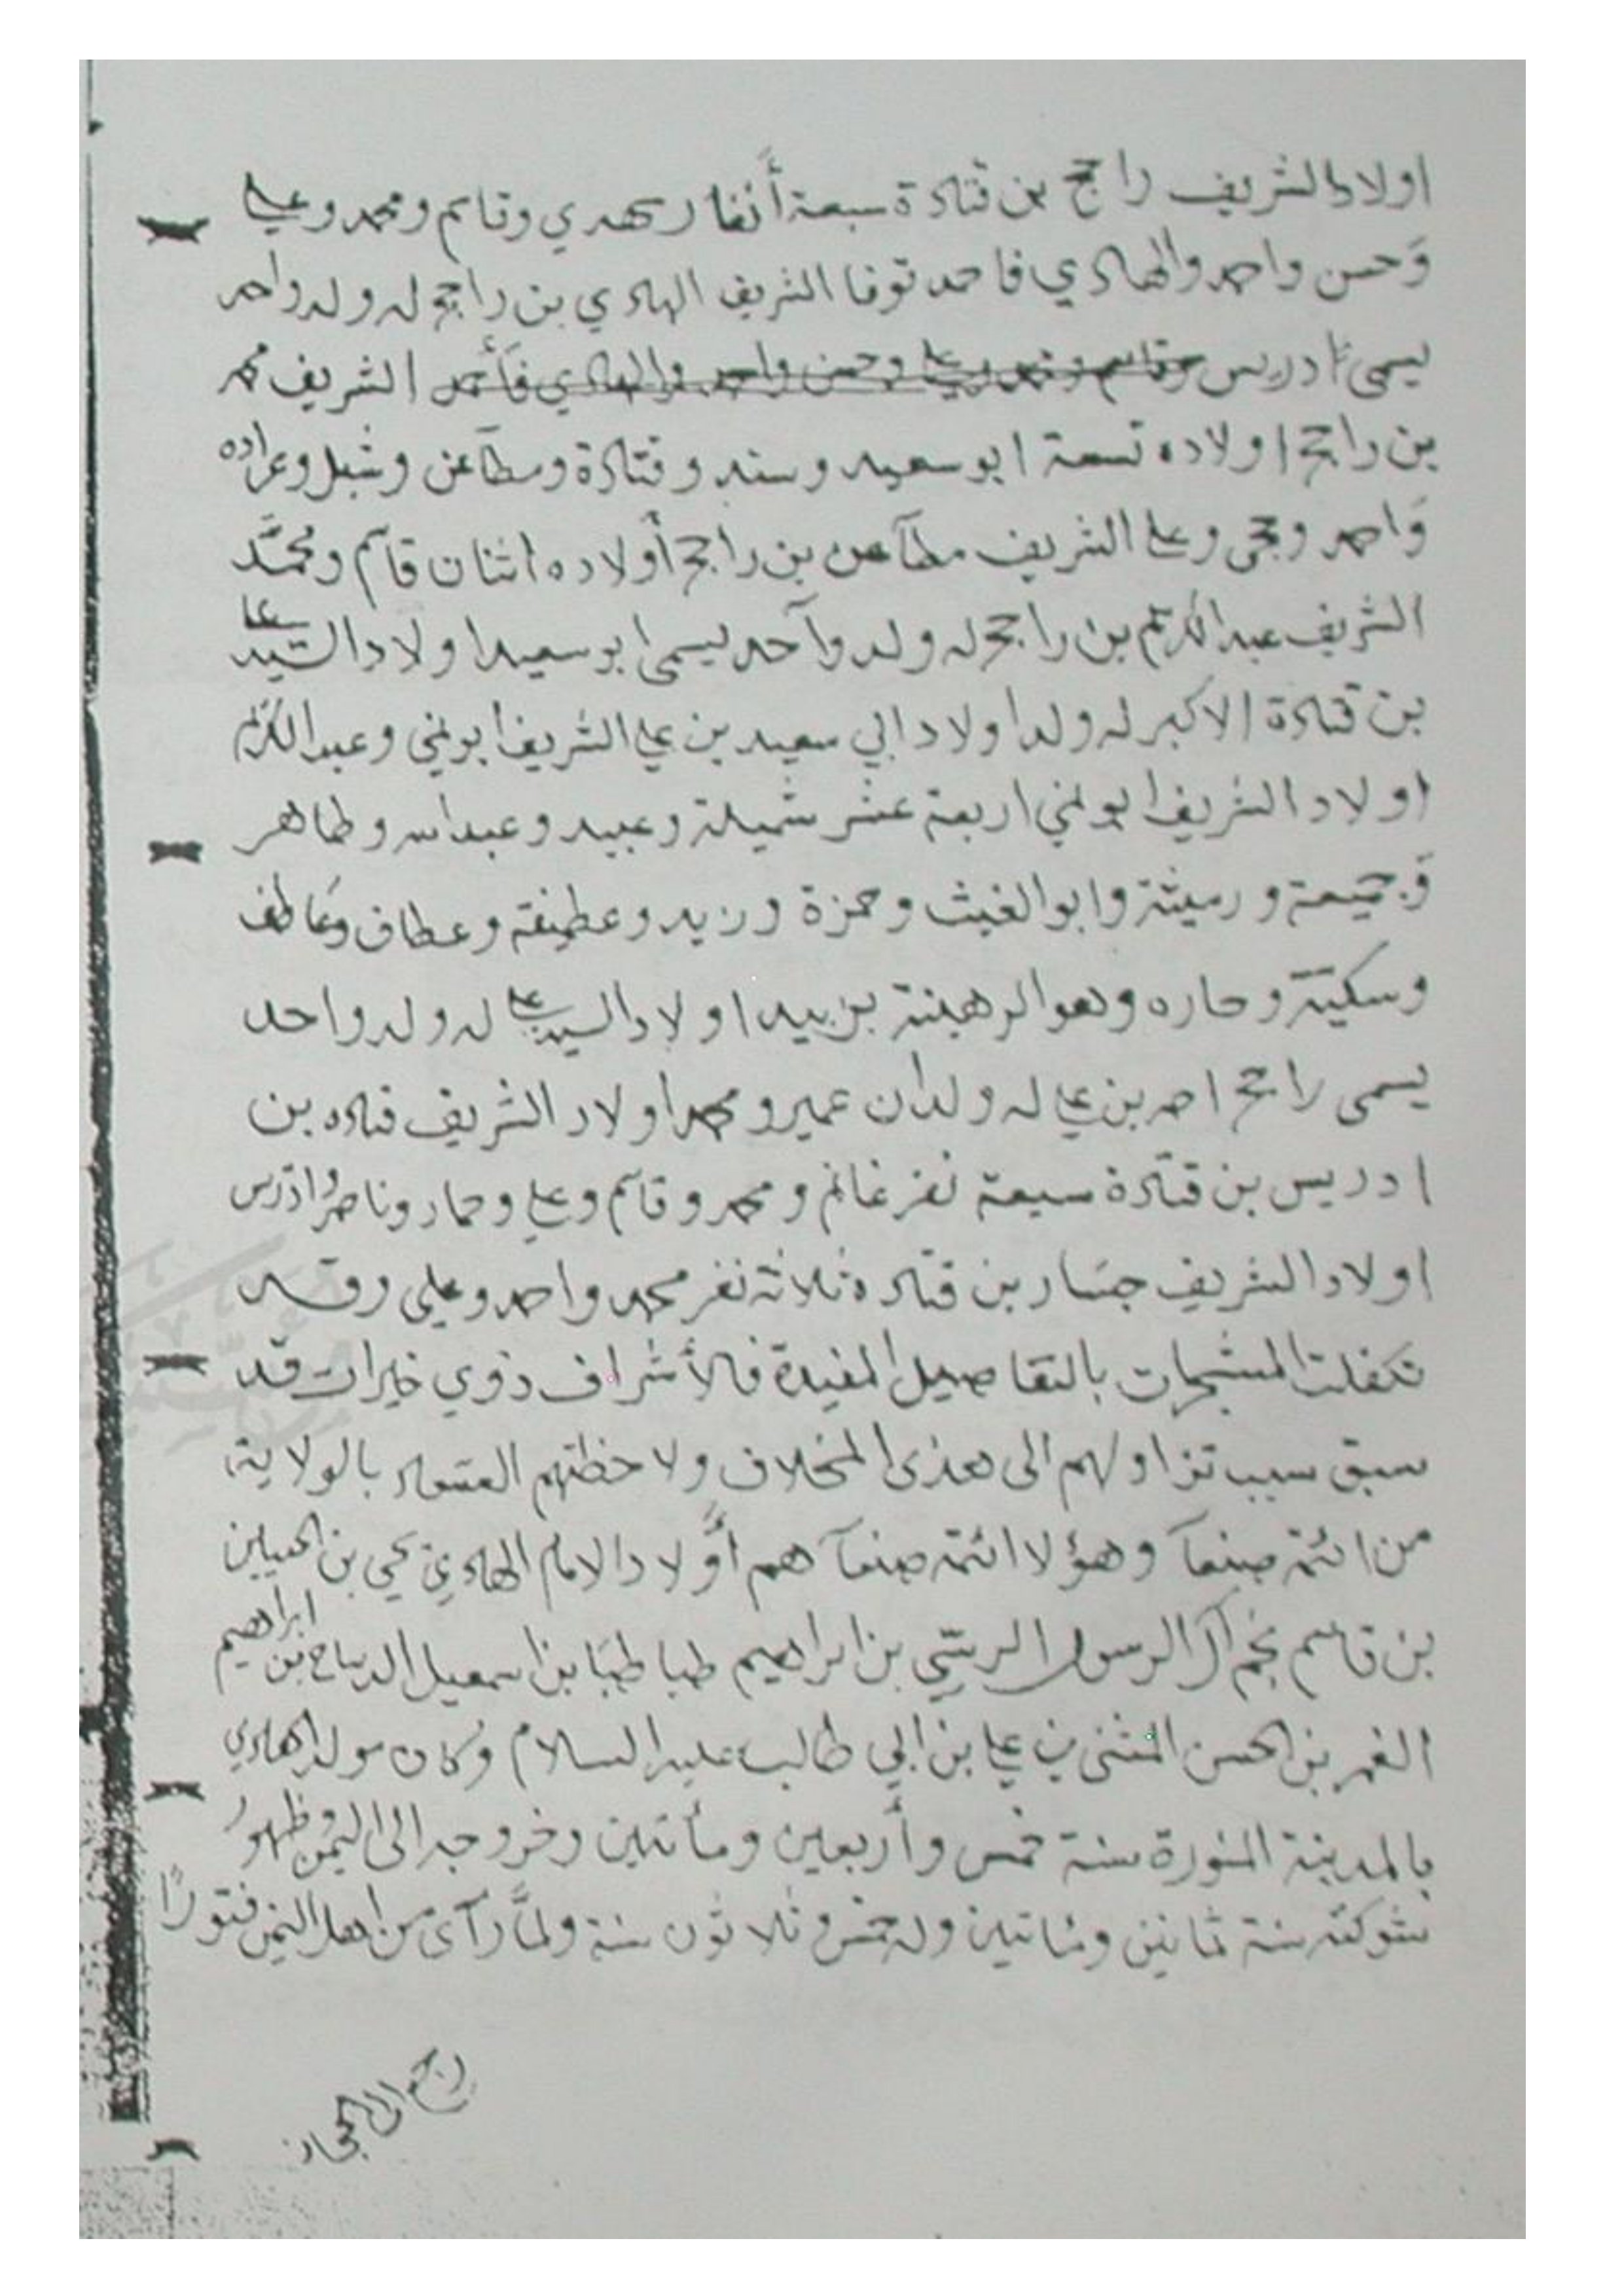 اولاد الشريف راجح بن قتادة سبعة أنفار مهدي وقاسم ومحمد وعلي
وَحسن واحمد والهادي فاحمد توفا الشريف الهادي بن راجح له ولد واحد
يسمى ادريس وقاسم ومحمد وعلي وحسن واحمد والهادي فأحمد الشريف محمد
بن راجح اولاده تسعة ابو سعيد وسند وقتادة ومطاعن وشبل وعراده
وَاحمد ويحيى وعلي الشريف مطآعن بن راجح أولاده اثنان قاسم ومحمَّد
الشريف عبد الكريم بن راجح له ولد وآحد يسمى ابو سعيد اولاد السيد علي
بن قتادة الاكبر له ولد اولاد ابي سعيد بن علي الشريف ابو نمي وعبد الكريم
اولاد الشريف ابو نمي اربعة عشر شميلة وعبيد وعبدالله وطاهر
وَجميعة ورميثة وابو الغيث وحمزة وزيد وعطيفة وعطاف وعَاطف
وسكينة وحاره وهو الرهينة اولاد السيد علي له ولد واحد
يسمى راجح احمد بن علي له ولدان عمير ومحمد اولاد الشريف قتاده بن
ادريس بن قتادة سبعة نفر غانم ومحمد وقاسم وعلي وحمار وناصر وادريس
اولاد الشريف جسار بن قتاده ثلاثة نفر محمد واحمد وعلي وقد
تكفلت المشجرات بالتفاصيل المفيدة فالأشراف ذوي خيرات قد
سبق سبب نزاولهم الى هذى المخلاف ولاحظتهم بالولاية
من ائمة صنعآ وهؤلا ائمة صنعآ هم أوَّلاد الامام الهادي يحيى بن الحسين
بن قاسم نجم آل الرسول الرسّي بن ابراهيم طباطبَا بن اسمعيل الديباج بن ابراهيم
الغمر بن الحسن المثنى بن علي بن ابي طالب عليه السلام وكان مولد الهادي
بالمدينة المنورة سنة خمس وأربعين ومأتين وخروجه الى اليمن وظهور
شوكته سنة ثمانين ومئاتين وله خمس وثلاثون سنة ولمَّا رآى من اهل اليمن فتورًا
رجع الى الحجاز